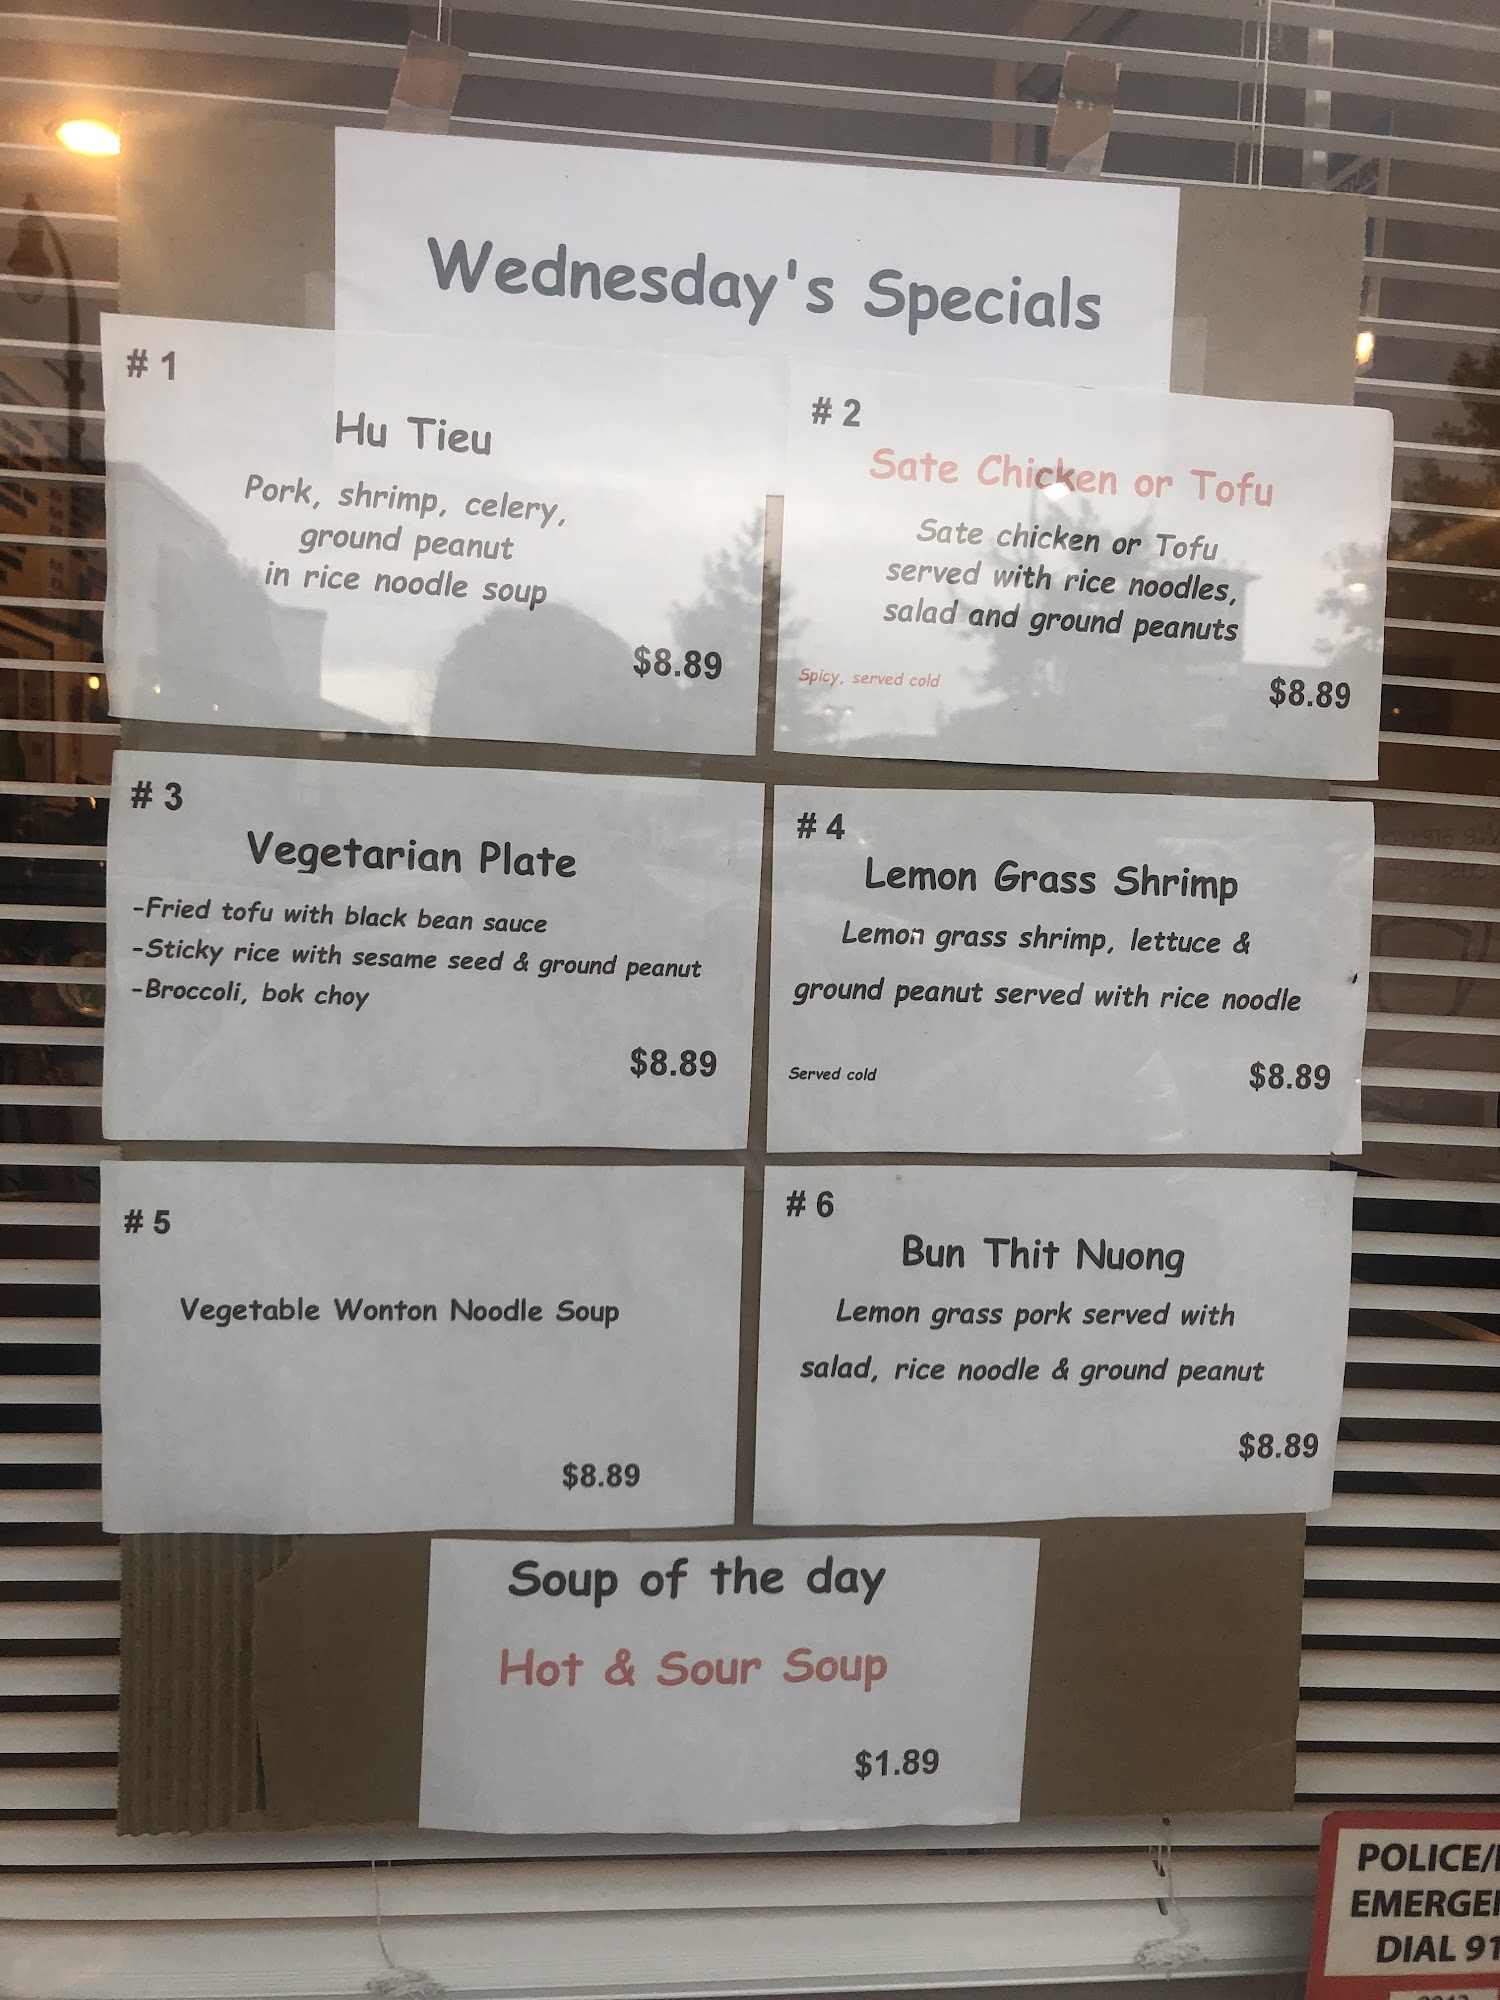 Wednesday's Specials
# 1
Hu Tieu
Pork, shrimp, celery,
ground peanut
in rice noodle soup
$8.89
# 2
Sate Chicken or Tofu
Sate chicken or Tofu
served with rice noodles,
salad and ground peanuts
Spicy, served cold
$8.89
# 3
Vegetarian Plate
-Fried tofu with black bean sauce
-Sticky rice with sesame seed & ground peanut
-Broccoli, bok choy
$8.89
# 4
Lemon Grass Shrimp
Lemon grass shrimp, lettuce &
ground peanut served with rice noodle
Served cold
$8.89
# 5
Vegetable Wonton Noodle Soup
$8.89
# 6
Bun Thit Nuong
Lemon grass pork served with
salad, rice noodle & ground peanut
$8.89
Soup of the day
Hot & Sour Soup
$1.89
POLICE/
EMERGE
DIAL 91